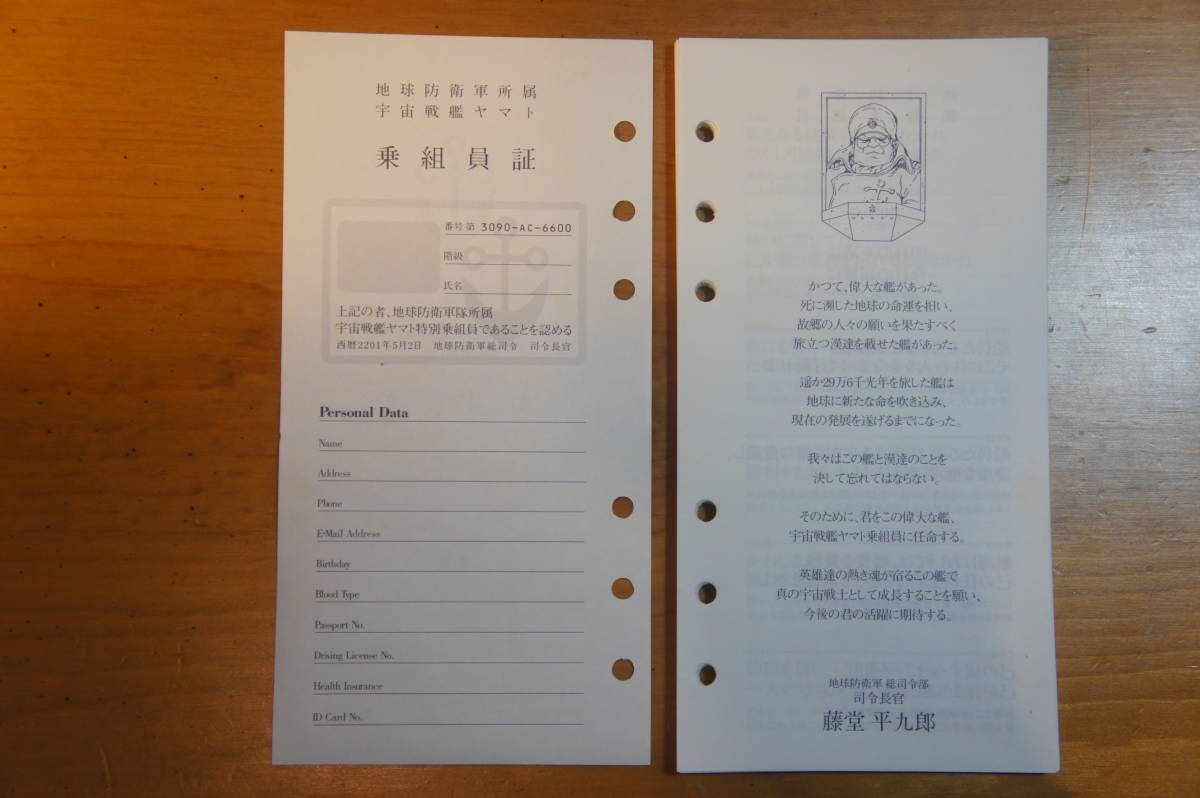 地球防衛軍所属
宇宙戦艦ヤマト
乗組員証
番号第 3090-AC-6600
階級
氏名
上記の者、地球防衛軍隊所属
宇宙戦艦ヤマト特別乗組員であることを認める
西暦2201年5月2日 地球防衛軍総司令 司令長官
Personal Data
Name
Address
Phone
E-Mail Address
Birthday
Blood Type
Passport No.
Driving License No.
Health Insurance
ID Card No.
かつて、偉大な艦があった。
死に瀕した地球の命運を担い、
故郷の人々の願いを果たすべく
旅立つ漢達を載せた艦があった。
遥か29万6千光年を旅した艦は
地球に新たな命を吹き込み、
現在の発展を遂げるまでになった。
我々はこの艦と漢達のことを
決して忘れてはならない。
そのために、君をこの偉大な艦、
宇宙戦艦ヤマト乗組員に任命する。
英雄達の熱き魂が宿るこの艦で
真の宇宙戦士として成長することを願い、
今後の君の活躍に期待する。
地球防衛軍 総司令部
司令長官
藤堂 平九郎